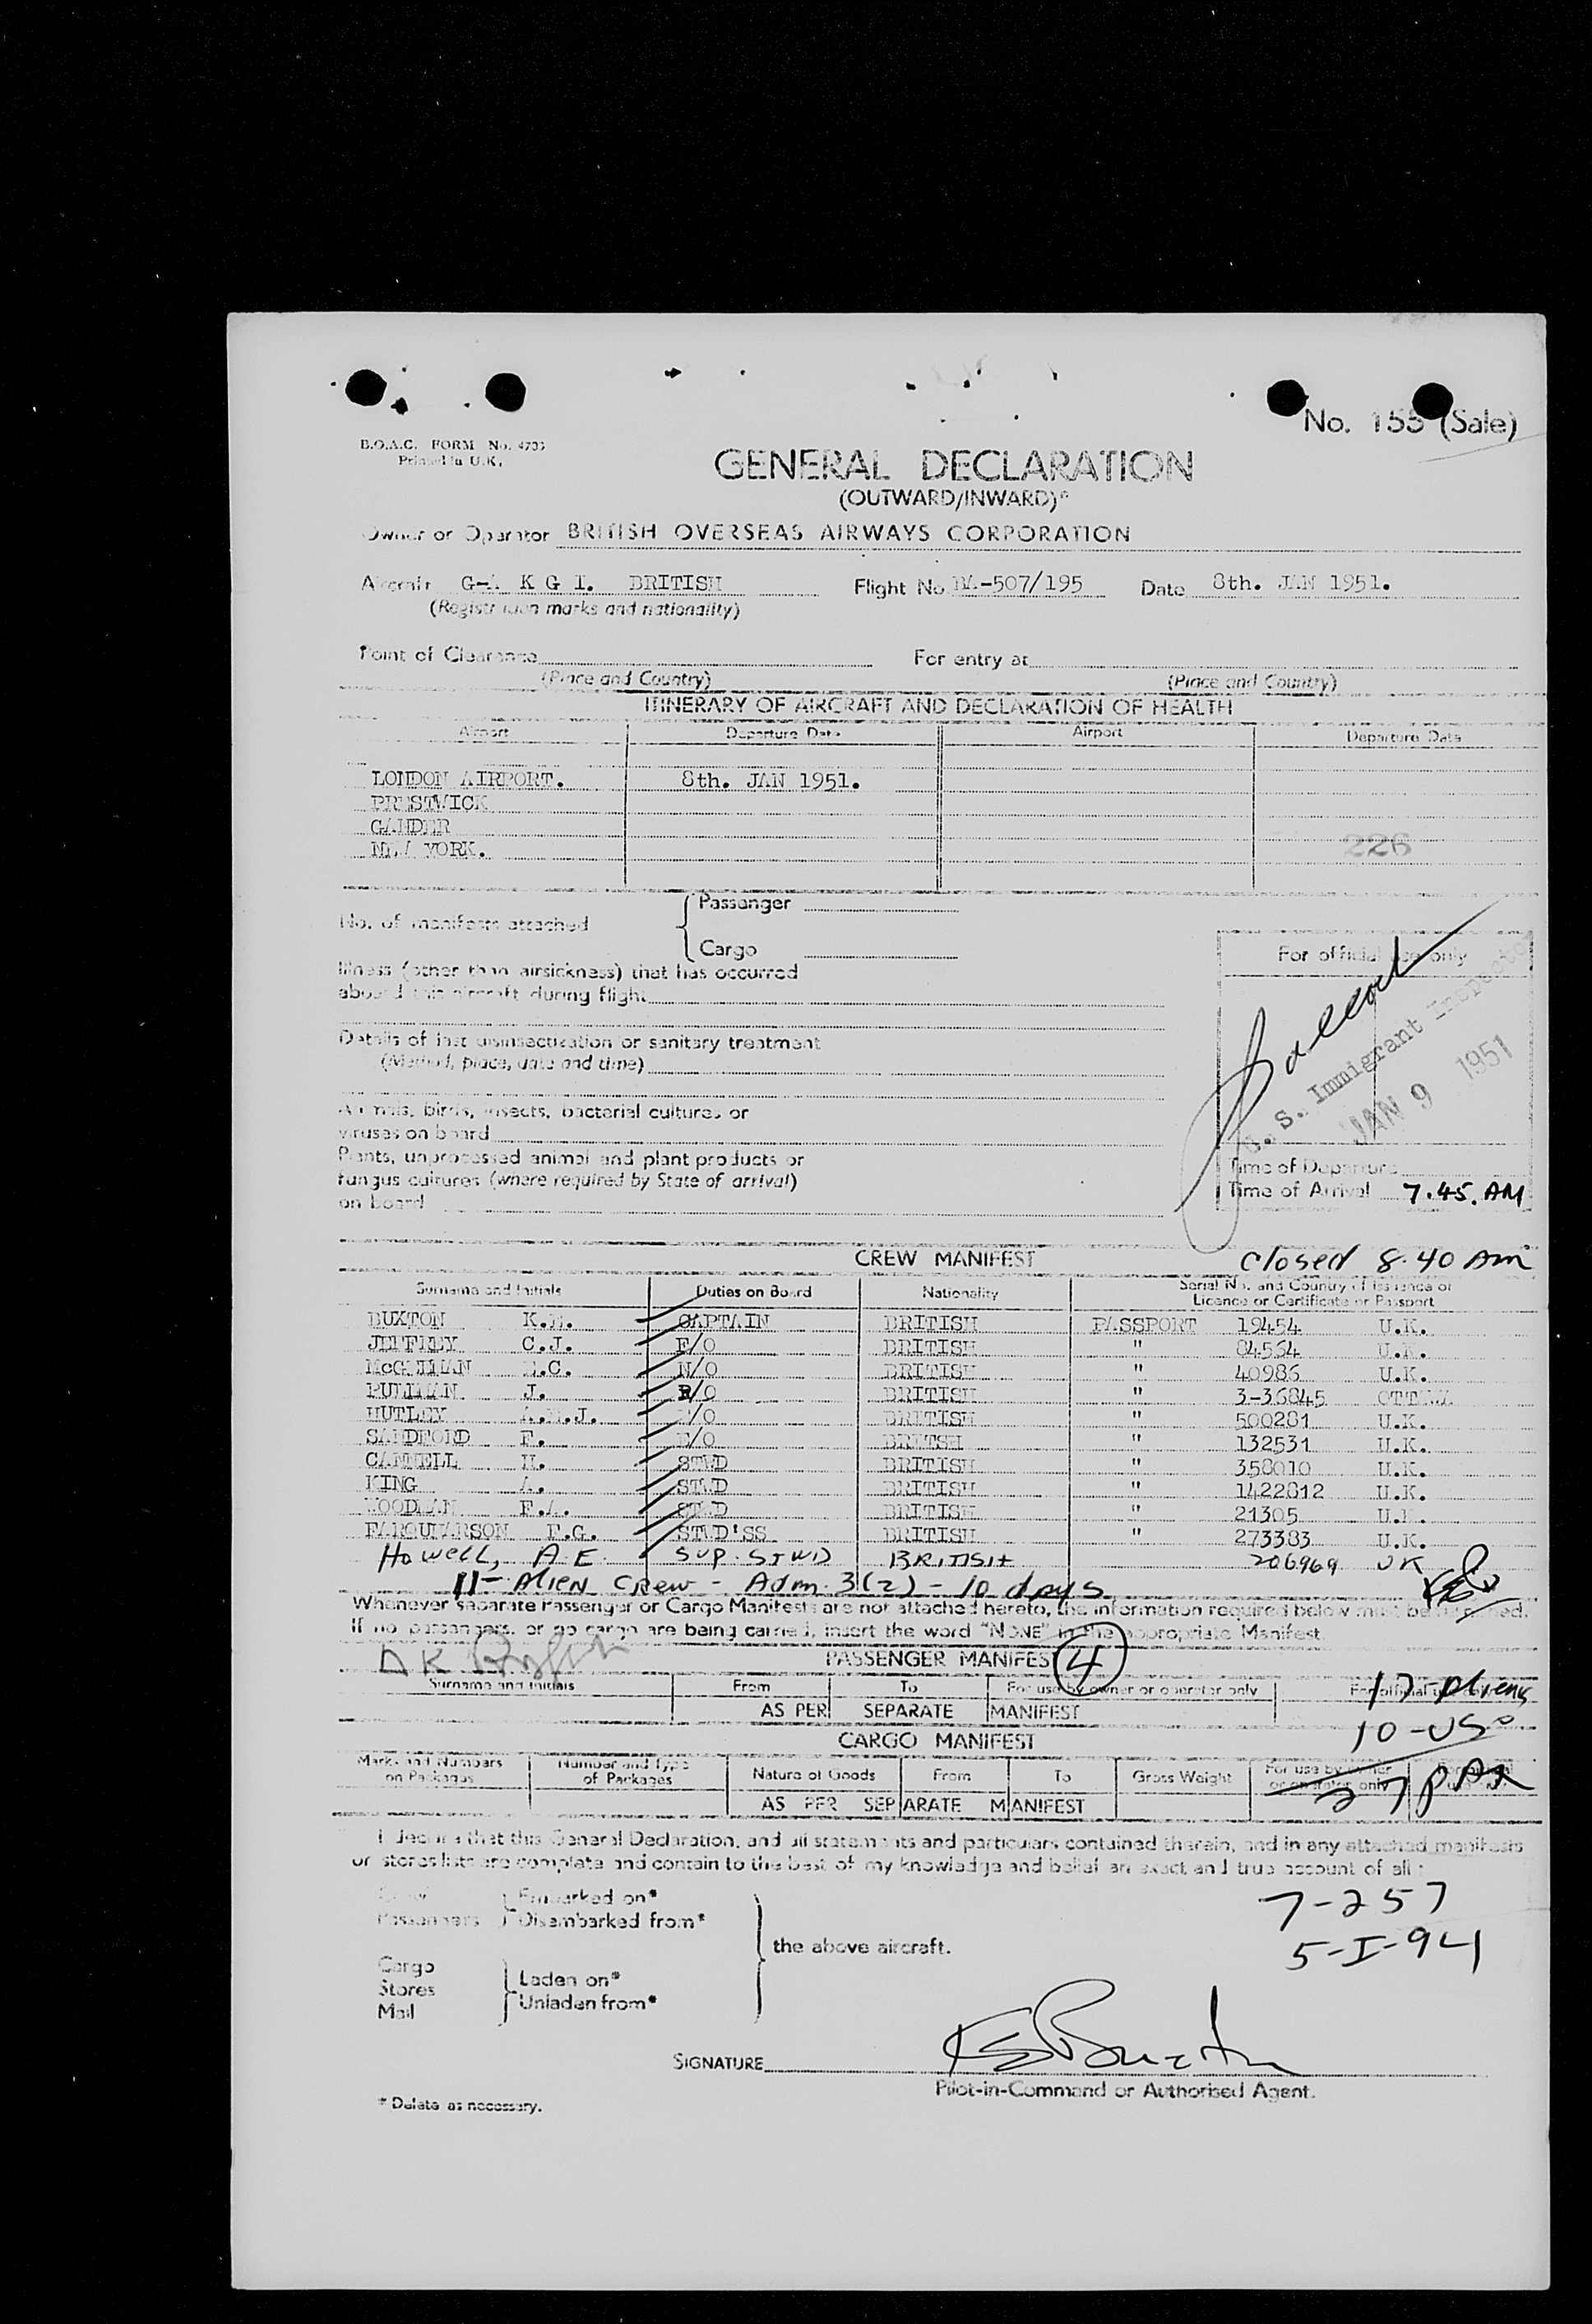 No. 155 (Sale)
B.O.A.C. FORM No. 4703
Printed in U.K.
GENERAL DECLARATION
(OUTWARD/INWARD)*
Owner or Operator BRITISH OVERSEAS AIRWAYS CORPORATION
Aircraft G-A K G I. BRITISH Flight No. BA-507/195 Date 8th. JAN 1951.
(Registration marks and nationality)
Point of Clearance For entry at
(Place and Country) (Place and Country)
ITINERARY OF AIRCRAFT AND DECLARATION OF HEALTH
Airport Departure Date Airport Departure Date
LONDON AIRPORT. 8th. JAN 1951.
PRESTWICK
GANDER
NEW YORK. 226
No. of manifests attached Passenger
Cargo
For official use only
Illness (other than airsickness) that has occurred
aboard this aircraft during flight
Details of last disinsectization or sanitary treatment
(Method, place, date and time)
U. S. Immigrant Inspector
JAN 9 1951
Animals, birds, insects, bacterial cultures or
viruses on board
Plants, unprocessed animal and plant products or
fungus cultures (where required by State of arrival)
on board
Time of Departure
Time of Arrival 7.45. AM
CREW MANIFEST closed 8.40 Am
Surname and Initials Duties on Board Nationality Serial No. and Country of issuance of
Licence or Certificate or Passport
BUXTON CAPTAIN BRITISH PASSPORT 19454 U.K.
JEFFREY C.J. F/O BRITISH " 84564 U.K.
N/O BRITISH " 40986 U.K.
J. R/O BRITISH " 3-36845 OTTAWA
HUTLEY /O BRITISH " 500281 U.K.
SANDFORD F. E/O BRITSH " 132531 U.K.
CANNELL H. STWD BRITISH " 358010 U.K.
KING A. STWD BRITISH " 1422812 U.K.
WOODMAN F.A. STWD BRITISH " 21305 U.K.
FARQUHARSON STWD'SS BRITISH " 273383 U.K.
Howell, A.E. SUP. STWD BRITISH 206969 UK
11- Alien Crew - Adm. 3(2) - 10 days
Whenever separate Passenger or Cargo Manifests are not attached hereto, the information required below must be furnished.
If no passengers, or no cargo are being carried, insert the word "NONE" in the appropriate Manifest.
PASSENGER MANIFEST 4
Surname and Initials From To For use by owner or operator only For official use only
17-Aliens
AS PER SEPARATE MANIFEST
10-USC
CARGO MANIFEST
Marks and Numbers on Packages Number and Type of Packages Nature of Goods From To Gross Weight For use by owner or operator only For official use only
27 PAX
AS PER SEPARATE MANIFEST
I declare that this General Declaration, and all statements and particulars contained therein, and in any attached manifests
or stores lists are complete and contain to the best of my knowledge and belief an exact and true account of all :
Crew Embarked on*
Passengers Disembarked from*
7-257
the above aircraft.
5-I-94
Cargo
Stores Laden on*
Mail Unladen from*
SIGNATURE
Pilot-in-Command or Authorised Agent.
* Delete as necessary.